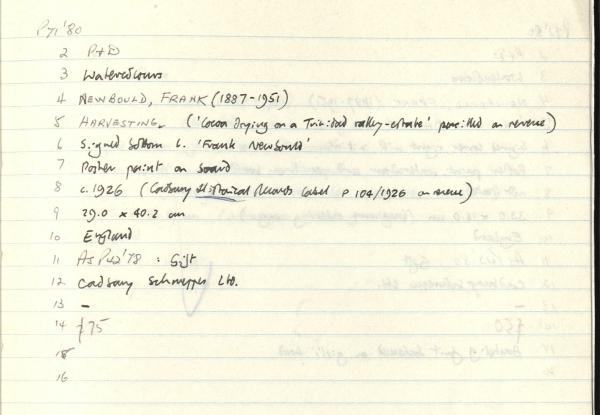 P71'80
2 P+D
3 Watercolours
4 NEWBOULD, FRANK (1887-1951)
5 HARVESTING. ('Cocoa drying on a Trinidad estate' pencilled on reverse)
6 Signed bottom L. 'Frank Newbould'
7 Poster paint on board
8 c.1926 (Cadbury Historical Records Label P 104/1926 on reverse)
9 29.0 x 40.2 cm
10 England
11 As P62'78 : Gift
12 Cadbury Schweppes Ltd.
13 -
14 £75
15
16